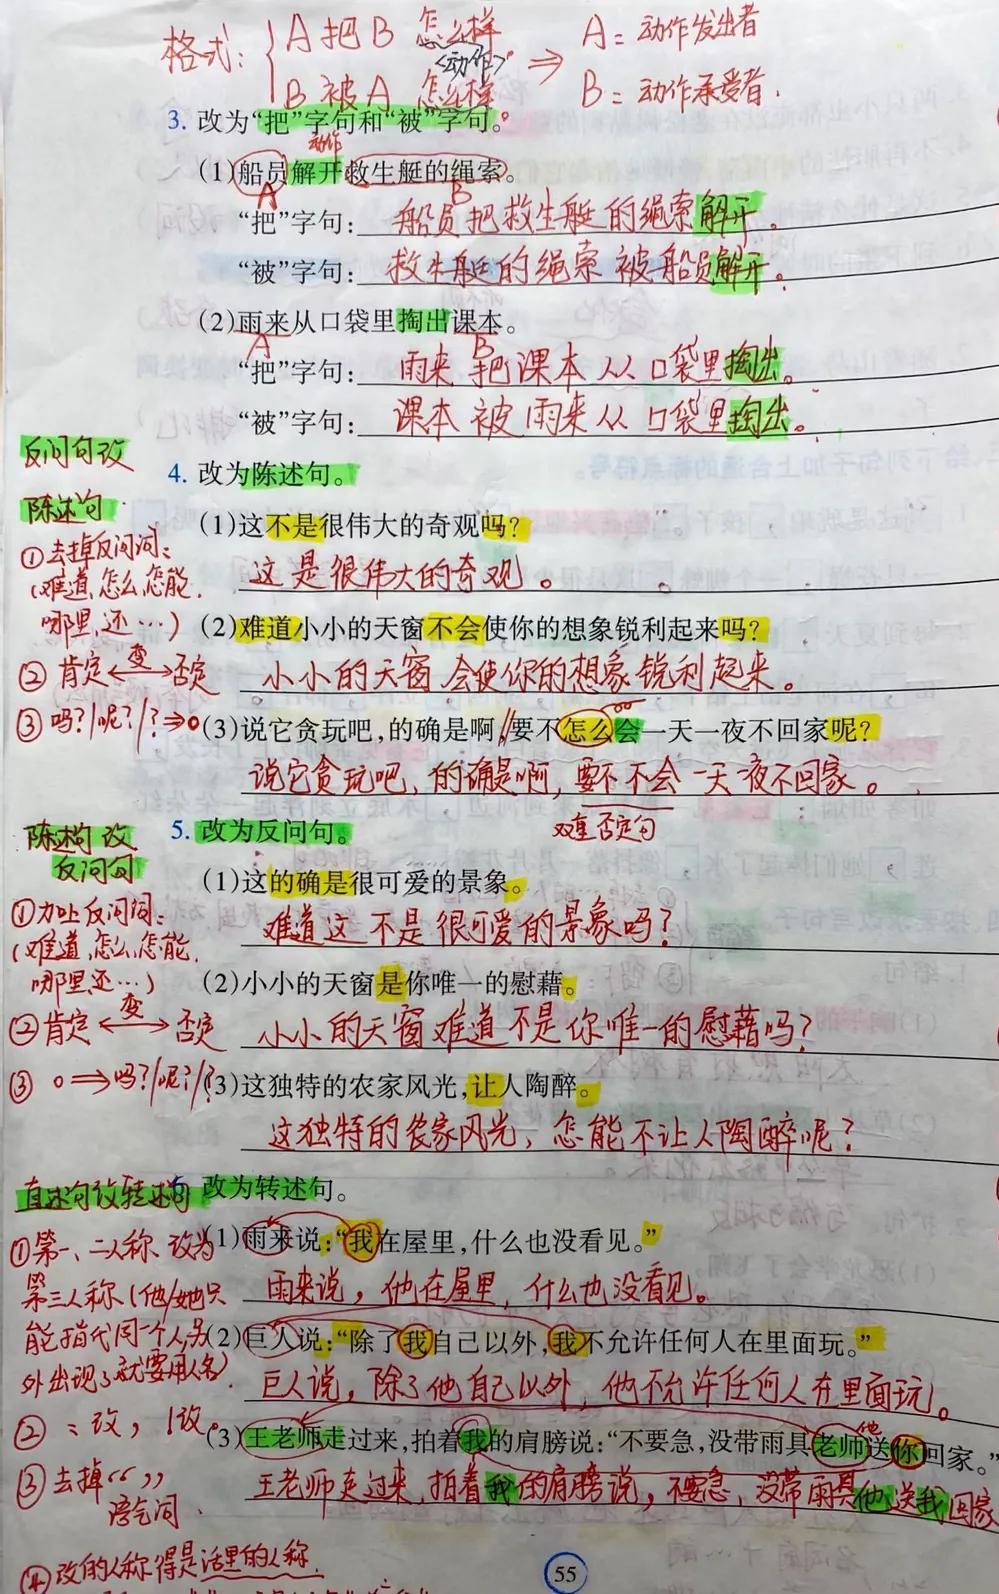 格式：A把B怎么样 ⇒ A=动作发出者
<动作>
B被A怎么样 B=动作承受者.
3. 改为“把”字句和“被”字句。
动作
(1)船员解开救生艇的绳索。
A B
“把”字句：船员把救生艇的绳索解开。
“被”字句：救生艇的绳索被船员解开。
(2)雨来从口袋里掏出课本。
A B
“把”字句：雨来把课本从口袋里掏出。
“被”字句：课本被雨来从口袋里掏出。
反问句改
陈述句
4. 改为陈述句。
①去掉反问词：
(难道,怎么,怎能,
哪里,还…)
②肯定 变 否定
③吗?/呢?/?⇒。
(1)这不是很伟大的奇观吗?
这是很伟大的奇观。
(2)难道小小的天窗不会使你的想象锐利起来吗?
小小的天窗会使你的想象锐利起来。
(3)说它贪玩吧,的确是啊,要不怎么会一天一夜不回家呢?
说它贪玩吧,的确是啊,要不不会一天一夜不回家。
双重否定句
陈述句改
反问句
5. 改为反问句。
①加上反问词：
(难道,怎么,怎能,
哪里,还…)
②肯定 变 否定
③。⇒吗?/呢?/?
(1)这的确是很可爱的景象。
难道这不是很可爱的景象吗?
(2)小小的天窗是你唯一的慰藉。
小小的天窗难道不是你唯一的慰藉吗?
(3)这独特的农家风光,让人陶醉。
这独特的农家风光,怎能不让人陶醉呢?
直述句改转述句
6. 改为转述句。
①第一、二人称、改为
第三人称(他/她只
能指代同一个人,另
外出现了就要用人名)
②：改，！改。
③去掉“”
语气词.
④改的人称得是话里的人称.
(1)雨来说:“我在屋里,什么也没看见。”
雨来说,他在屋里,什么也没看见。
(2)巨人说:“除了我自己以外,我不允许任何人在里面玩。”
巨人说,除了他自己以外,他不允许任何人在里面玩。
他
(3)王老师走过来,拍着我的肩膀说:“不要急,没带雨具老师送你回家。”
王老师走过来,拍着我的肩膀说,不要急,没带雨具他送我回家
55